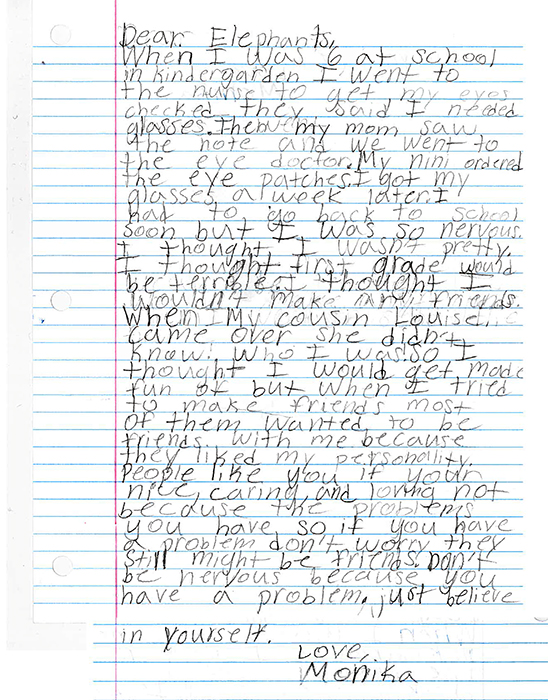 Dear Elephants,
When I was 6 at school
in kindergarden I went to
the nurse to get my eyes
checked they said I needed
glasses. Then my mom saw
the note and we went to
the eye doctor. My nini ordered
the eye patches. I got my
glasses a week later. I
had to go back to school
soon but I was so nervous.
I thought I wasn't pretty.
I thought first grade would
be terrible. I thought I
wouldn't make any friends.
When My cousin Louise
came over she didn't
know who I was. so I
thought I would get made
fun of but when I tried
to make friends most
of them wanted to be
friends with me because
they liked my personality.
People like you if your
nice, caring, and loving not
because the problems
you have so if you have
a problem don't worry they
still might be friends. Don't
be nervous because you
have a problem. just believe
in yourself.
Love,
Monika